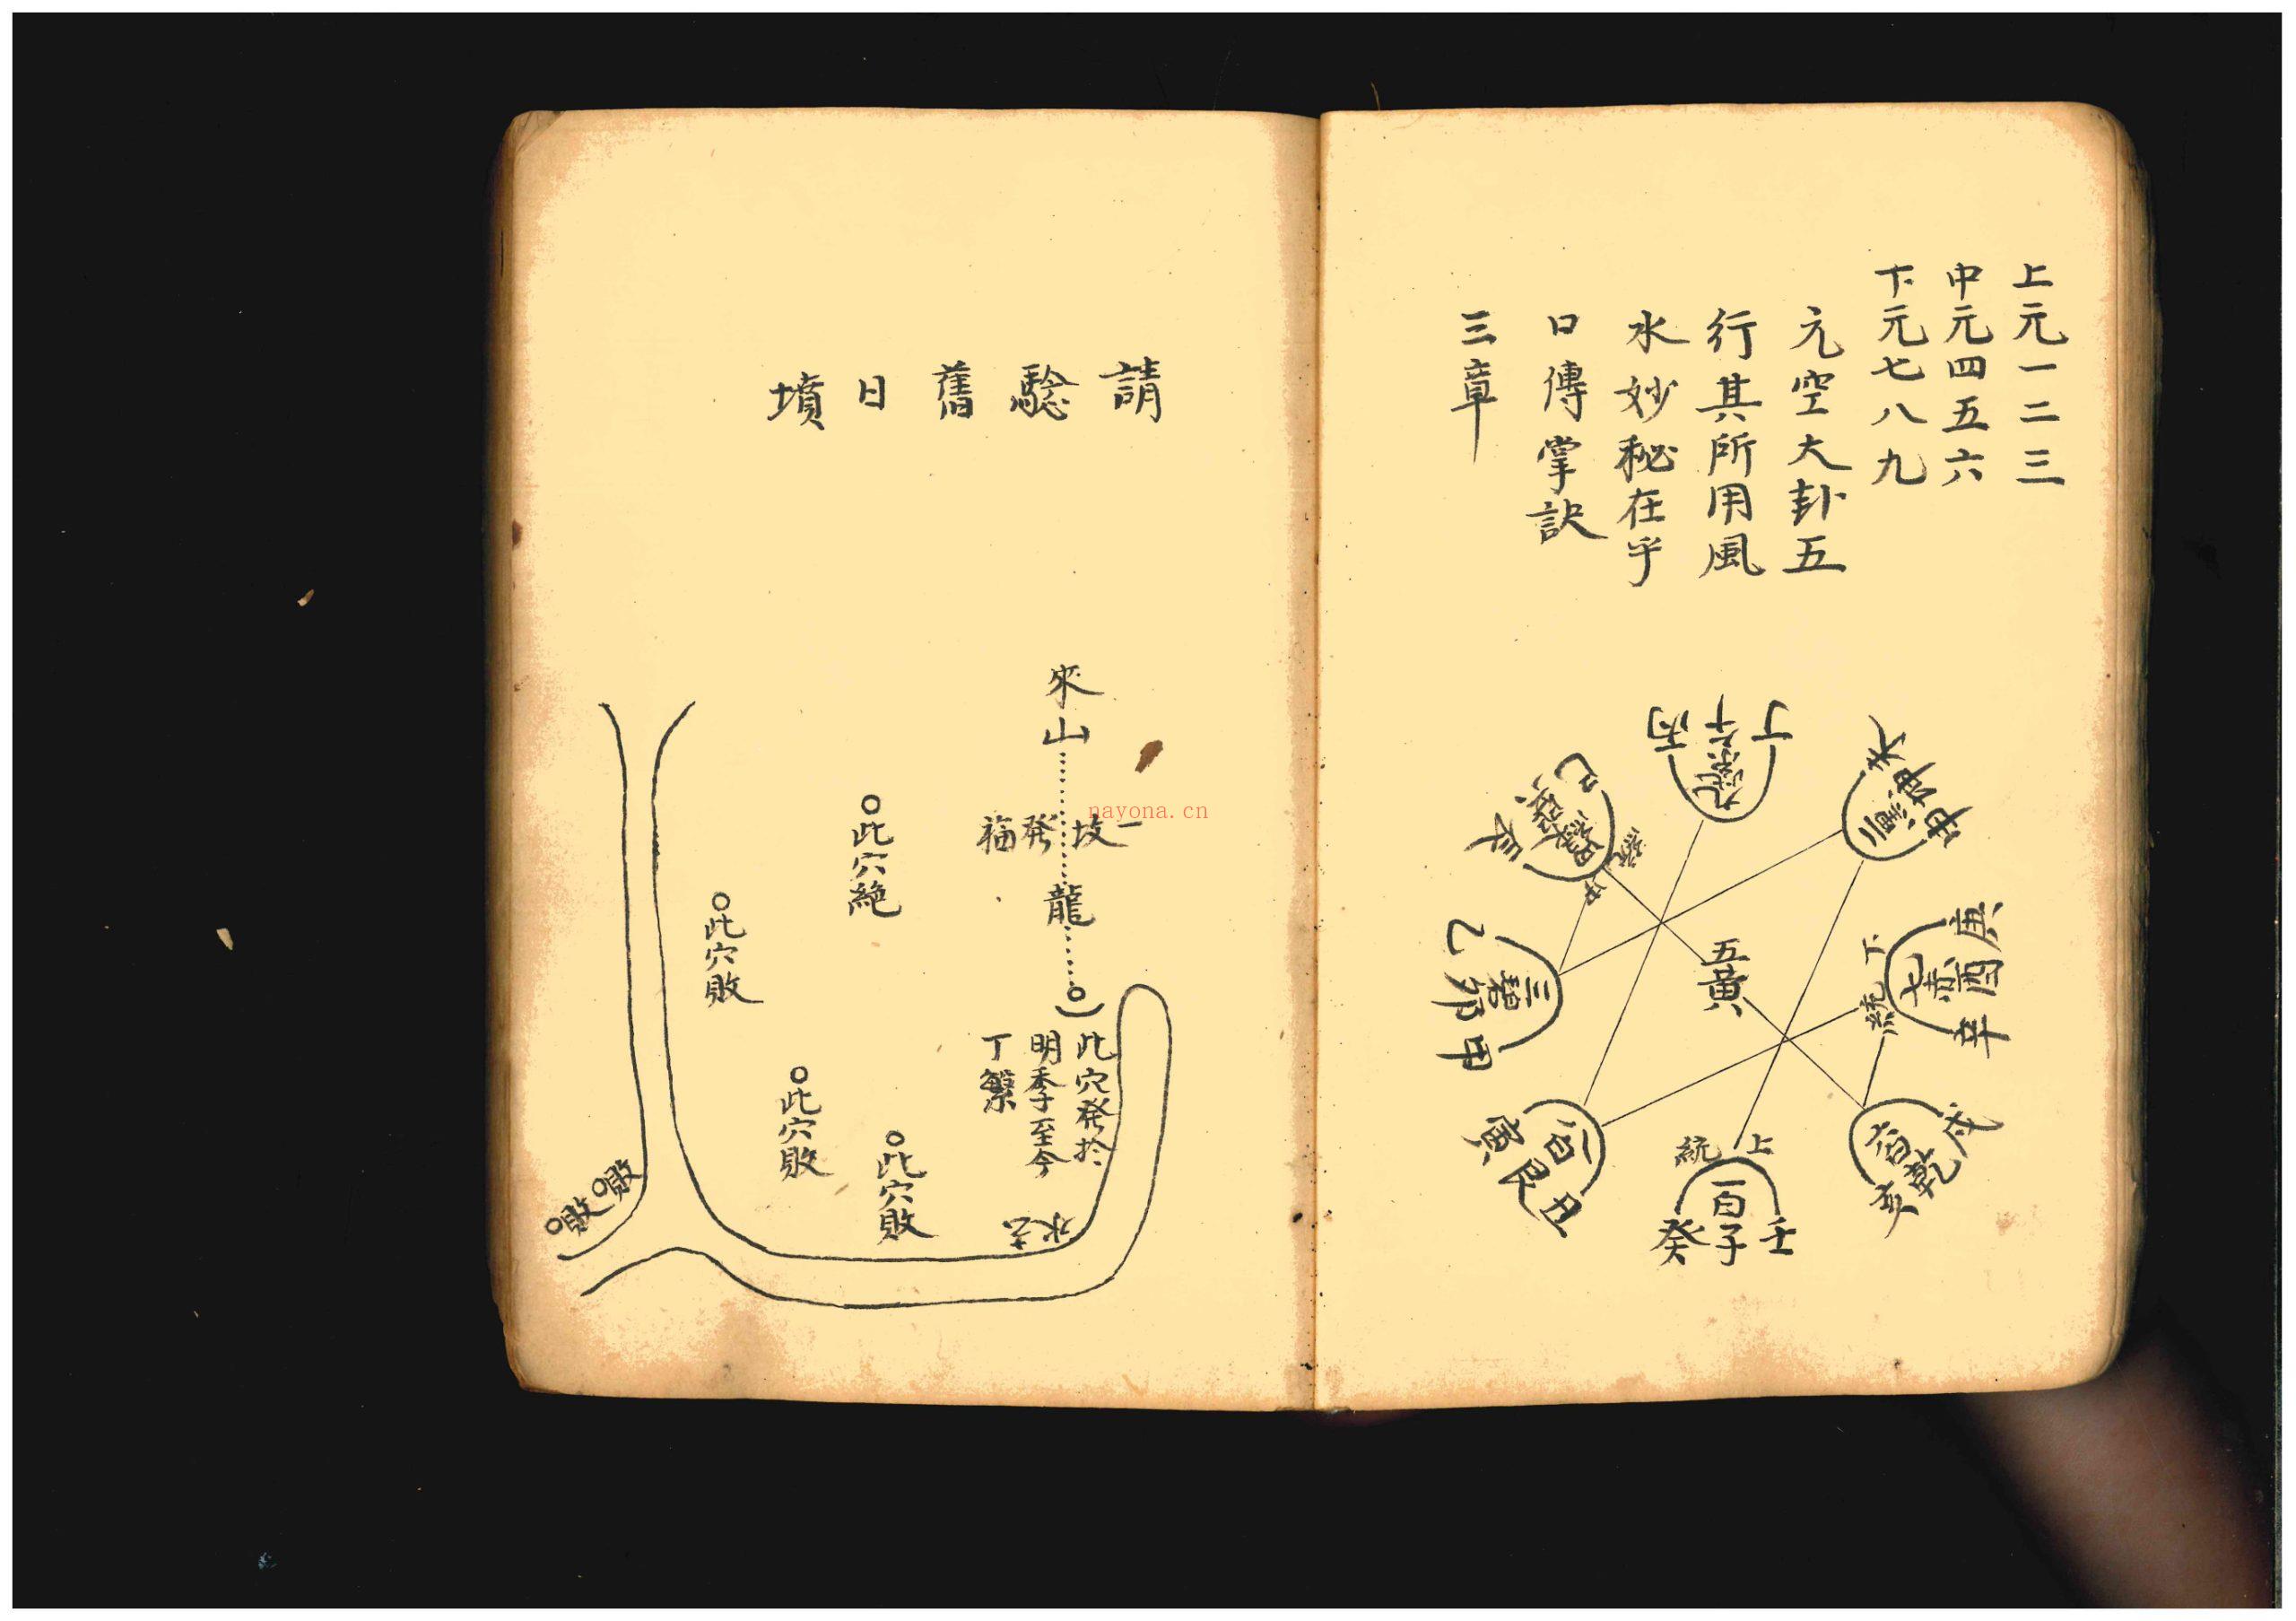 上元一二三
中元四五六
下元七八九
元空大卦五
行其所用風
水妙秘在乎
口傳掌訣
三章
丁
午
丙
九紫
未
坤
申
二黑
巳
巽
辰
四綠
中統
庚
酉
辛
七赤
下統
五黃
乙
卯
甲
三碧
戌
乾
亥
六白
上統
一白
壬
子
癸
八白
丑
艮
寅
請騐舊日墳
來山
龍
一坟發福
此穴發扵
明季至今
丁繁
水
此穴絕
此穴敗
此穴敗
此穴敗
敗
敗
nayona.cn